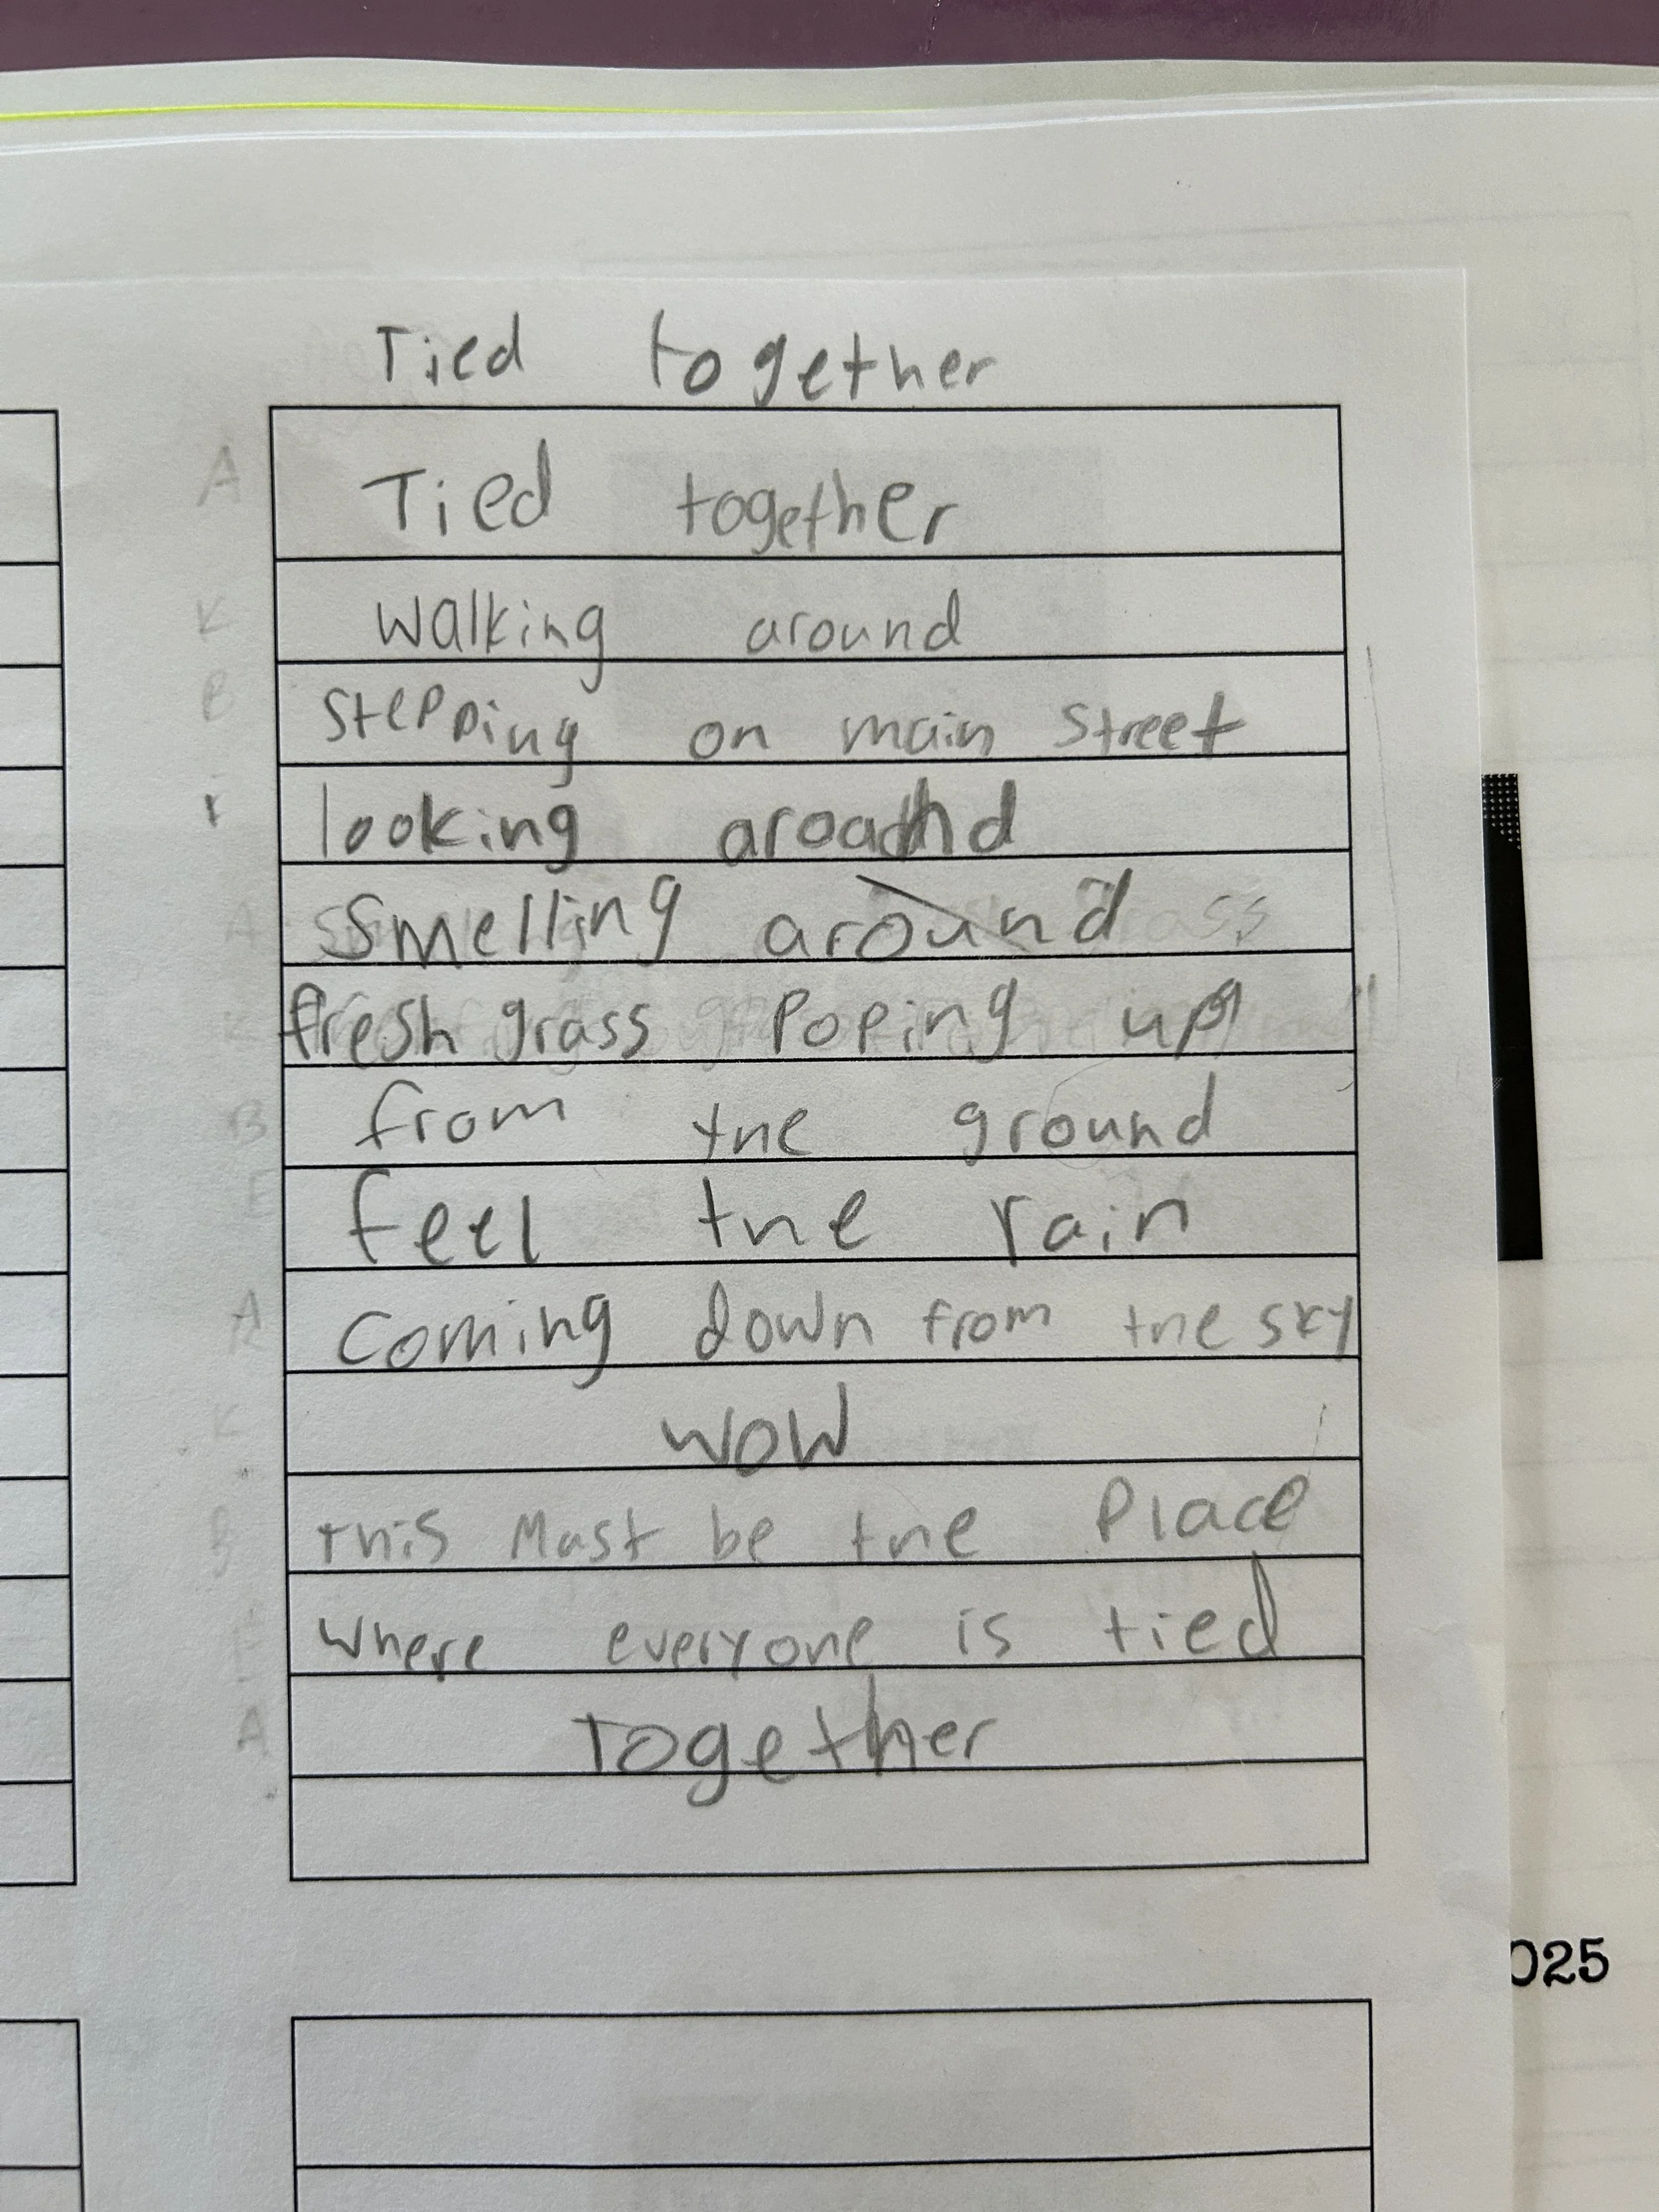 Tied together
A Tied together
K walking around
B stepping on main street
looking around
A Smelling around
K fresh grass Poping up
B from tne ground
E feel tne rain
A coming down from tne sky
K wow
B this Must be tne Place
E where everyone is tied
A Together
025